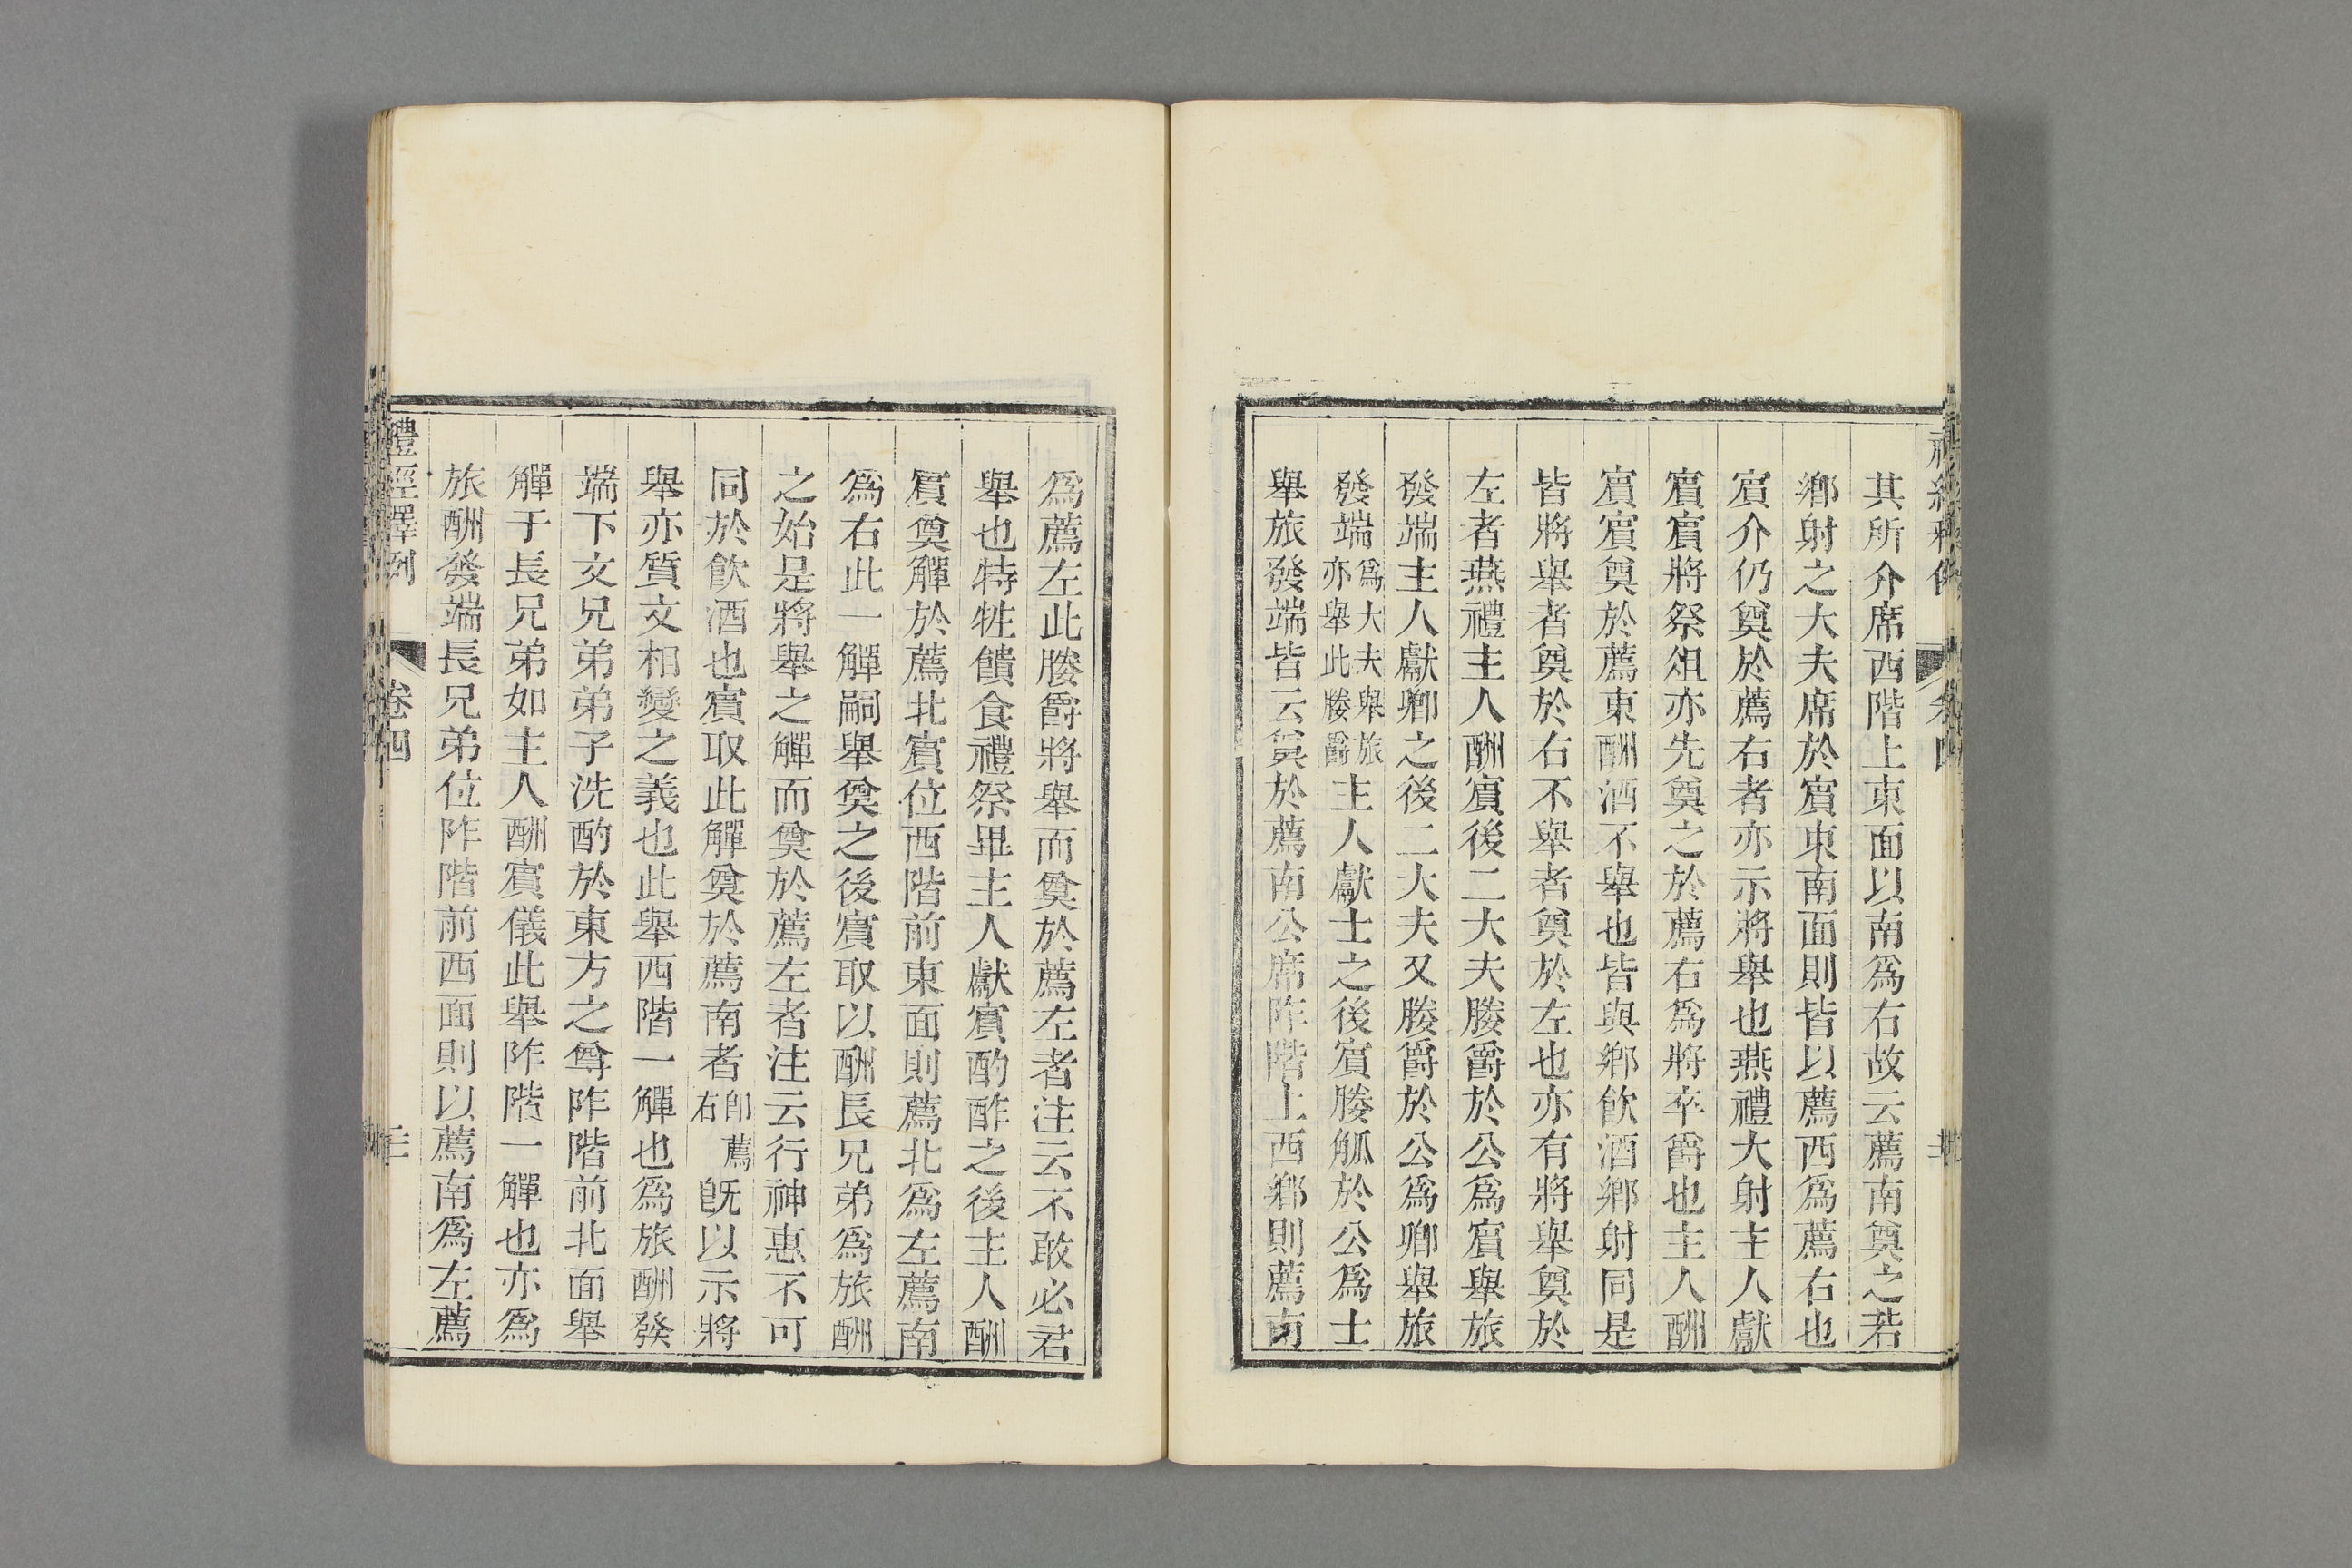 其所介席西階上東面以南爲右故云薦南奠之若
鄉射之大夫席於賓東南面則皆以薦西爲薦右也
賓介仍奠於薦右者亦示將舉也燕禮大射主人獻
賓賓將祭俎亦先奠之於薦右爲將卒爵也主人酬
賓賓奠於薦東酬酒不舉也皆與鄉飲酒鄉射同是
皆將舉者奠於右不舉者奠於左也亦有將舉奠於
左者燕禮主人酬賓後二大夫媵爵於公爲賓舉旅
發端主人獻卿之後二大夫又媵爵於公爲卿舉旅
發端爲大夫舉旅亦舉此媵爵主人獻士之後賓媵觚於公爲士
舉旅發端皆云奠於薦南公席阼階上西鄉則薦南
爲薦左此媵爵將舉而奠於薦左者注云不敢必君
舉也特牲饋食禮祭畢主人獻賓酌酢之後主人酬
賓奠觶於薦北賓位西階前東面則薦北爲左薦南
爲右此一觶嗣舉奠之後賓取以酬長兄弟爲旅酬
之始是將舉之觶而奠於薦左者注云行神惠不可
同於飲酒也賓取此觶奠於薦南者卽薦右旣以示將
舉亦質文相變之義也此舉西階一觶也爲旅酬發
端下文兄弟弟子洗酌於東方之尊阼階前北面舉
觶于長兄弟如主人酬賓儀此舉阼階一觶也亦爲
旅酬發端長兄弟位阼階前西面則以薦南爲左薦
禮經釋例 卷四